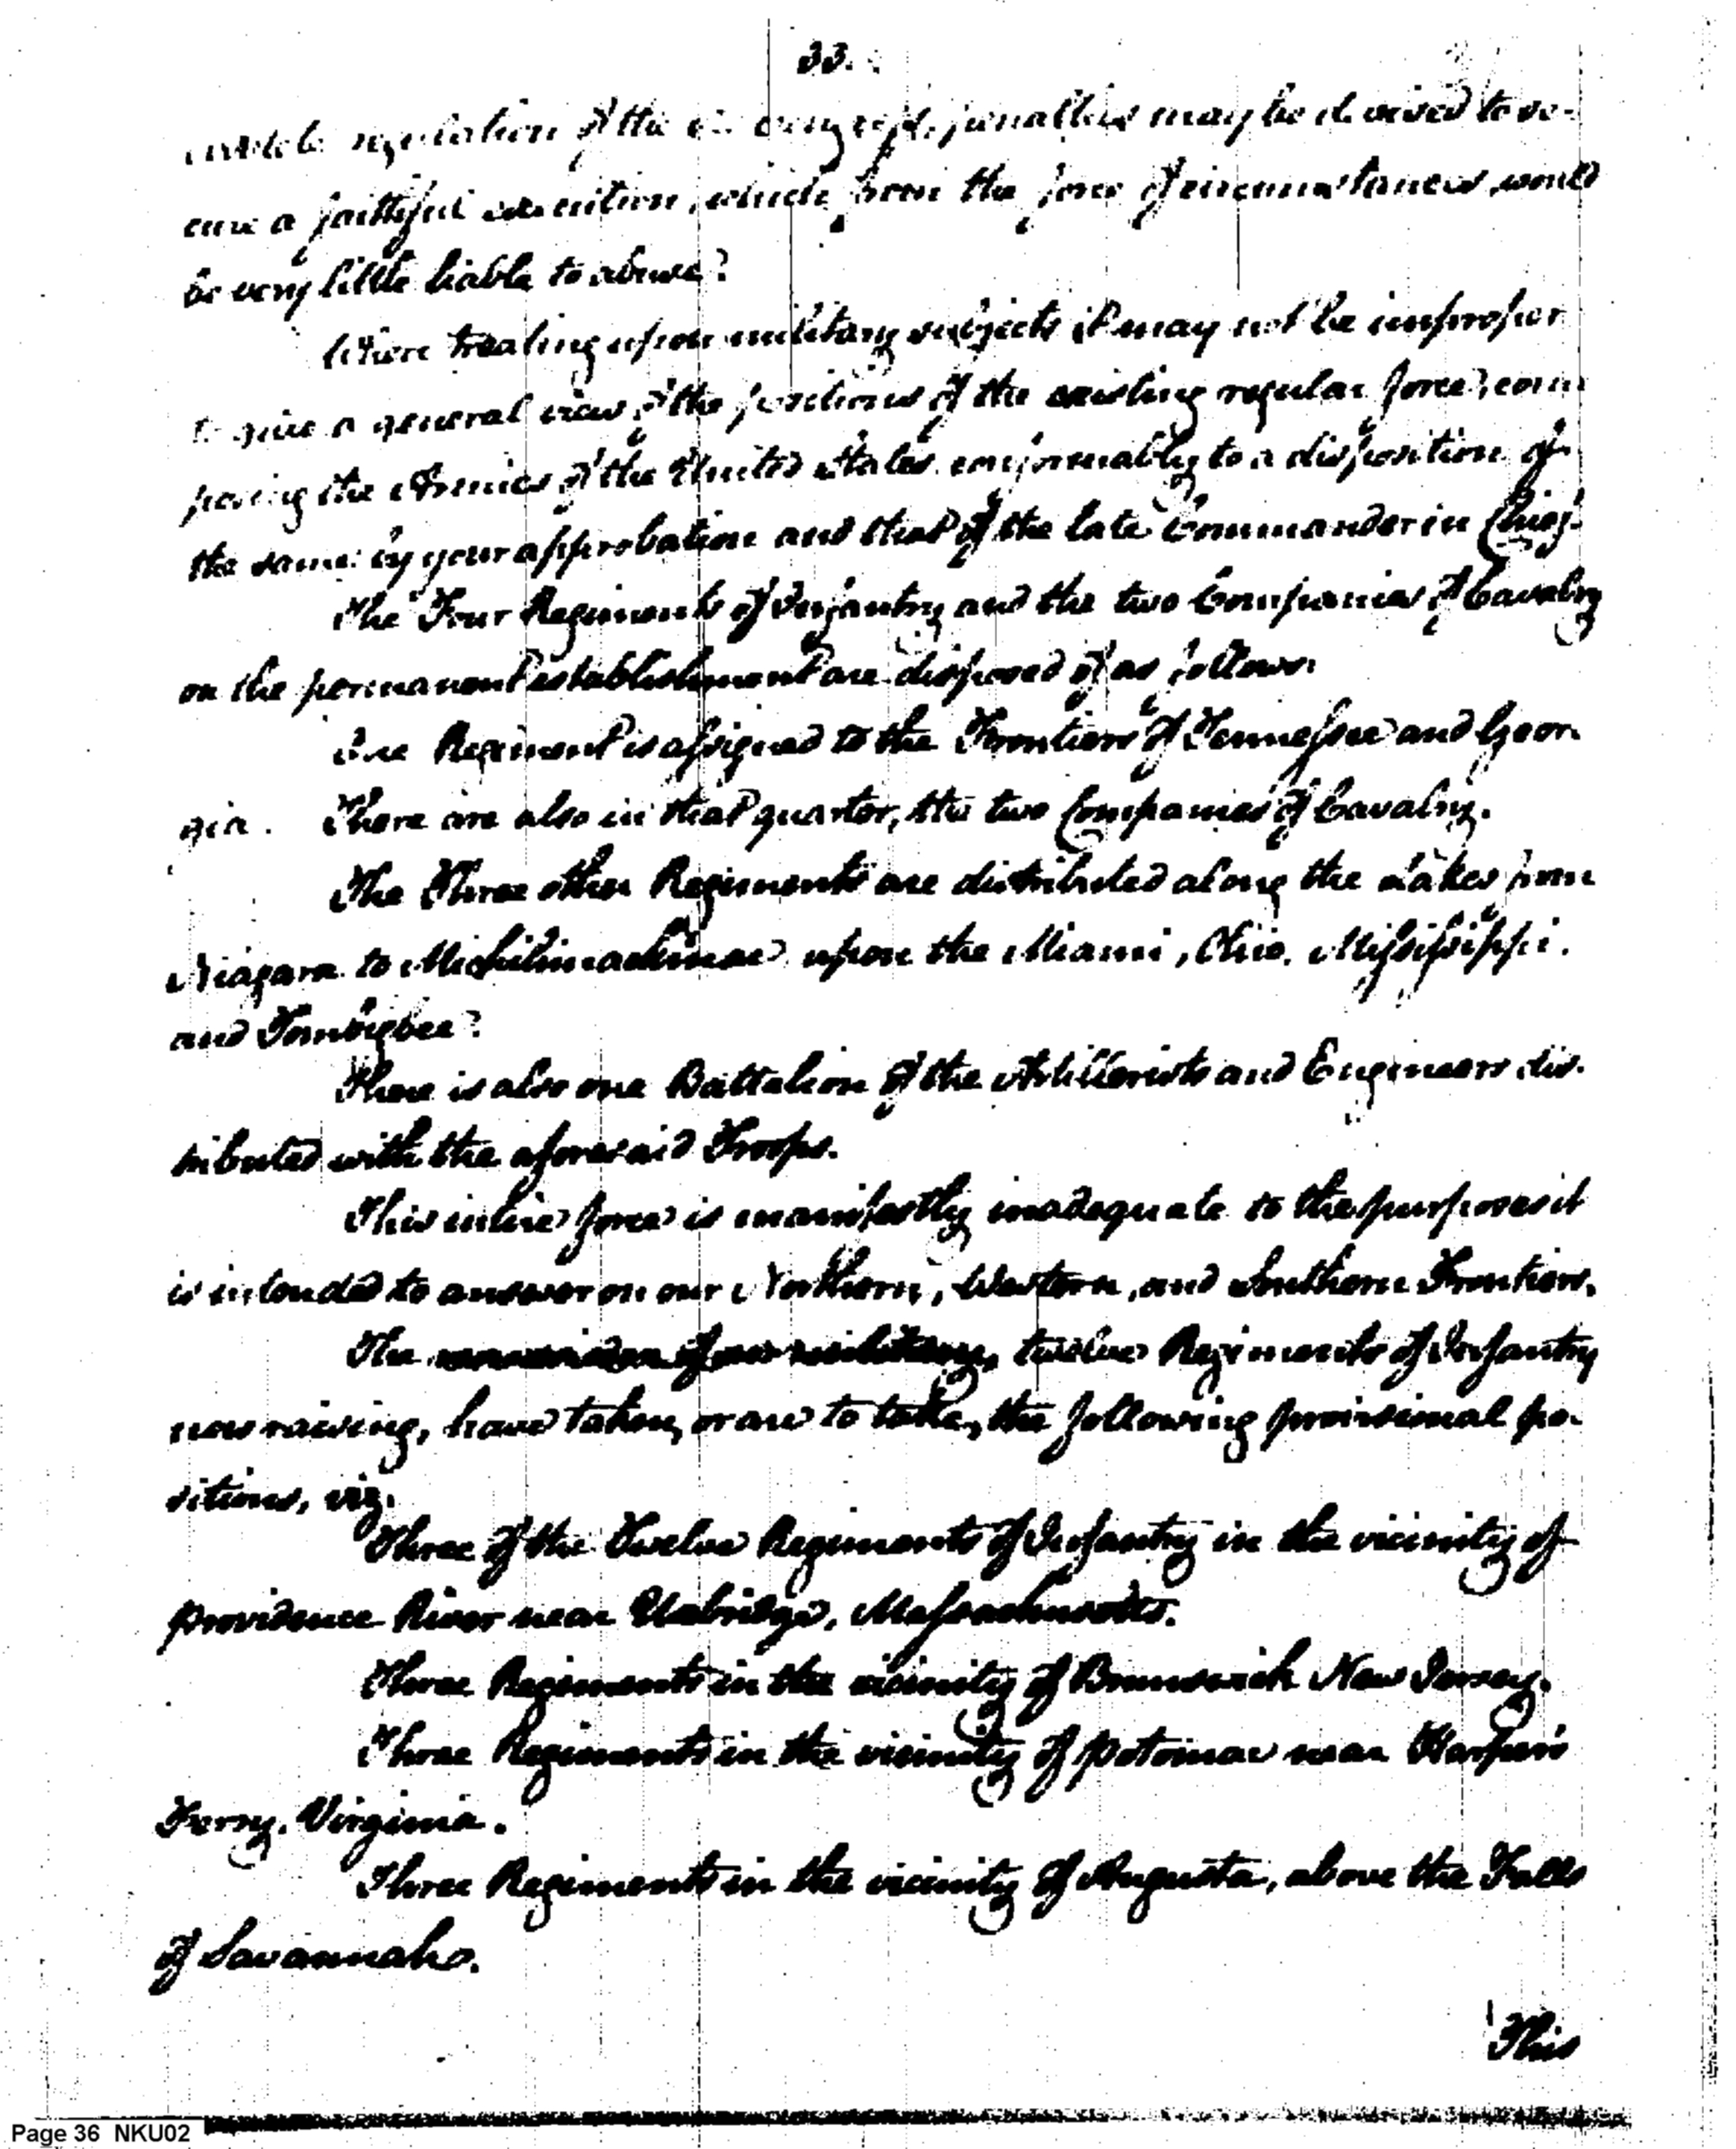 33.
regulation of the penalties may be devised to se-
cure a faithful execution, which from the force of circumstances, would
be very little liable to abuse?
Where treating upon military subjects it may not be improper
to give a general view of the positions of the existing regular force, com
posing the Armies of the United States conformably to a disposition of
the same by your approbation and that of the late Commander in Chief.
The Four Regiments of Infantry and the two Companies of Cavalry
on the permanent establishment are disposed of as follows.
One Regiment is assigned to the Frontiers of Tennessee and Geor.
gia. There are also in that quarter, the two Companies of Cavalry.
The Three other Regiments are distributed along the Lakes from
Niagara to Michilimackinac upon the Miami, Ohio, Mississippi.
and Tombigbee?
There is also one Battalion of the Artillerists and Engineers dis.
tributed with the aforesaid Troops.
This intire force is manifestly inadequate to the purposes it
is intended to answer on our Northern, Western, and Southern Frontiers.
The twelve Regiments of Infantry
now raising, have taken, or are to take, the following provisional po.
sitions, viz.
Three of the Twelve Regiments of Infantry in the vicinity of
providence River near Uxbridge, Massachusetts.
Three Regiments in the vicinity of Brunswick New Jersey.
Three Regiments in the vicinity of potomac near Harper's
Ferry. Virginia.
Three Regiments in the vicinity of Augusta, above the Falls
of Savannah.
This
Page 36 NKU02